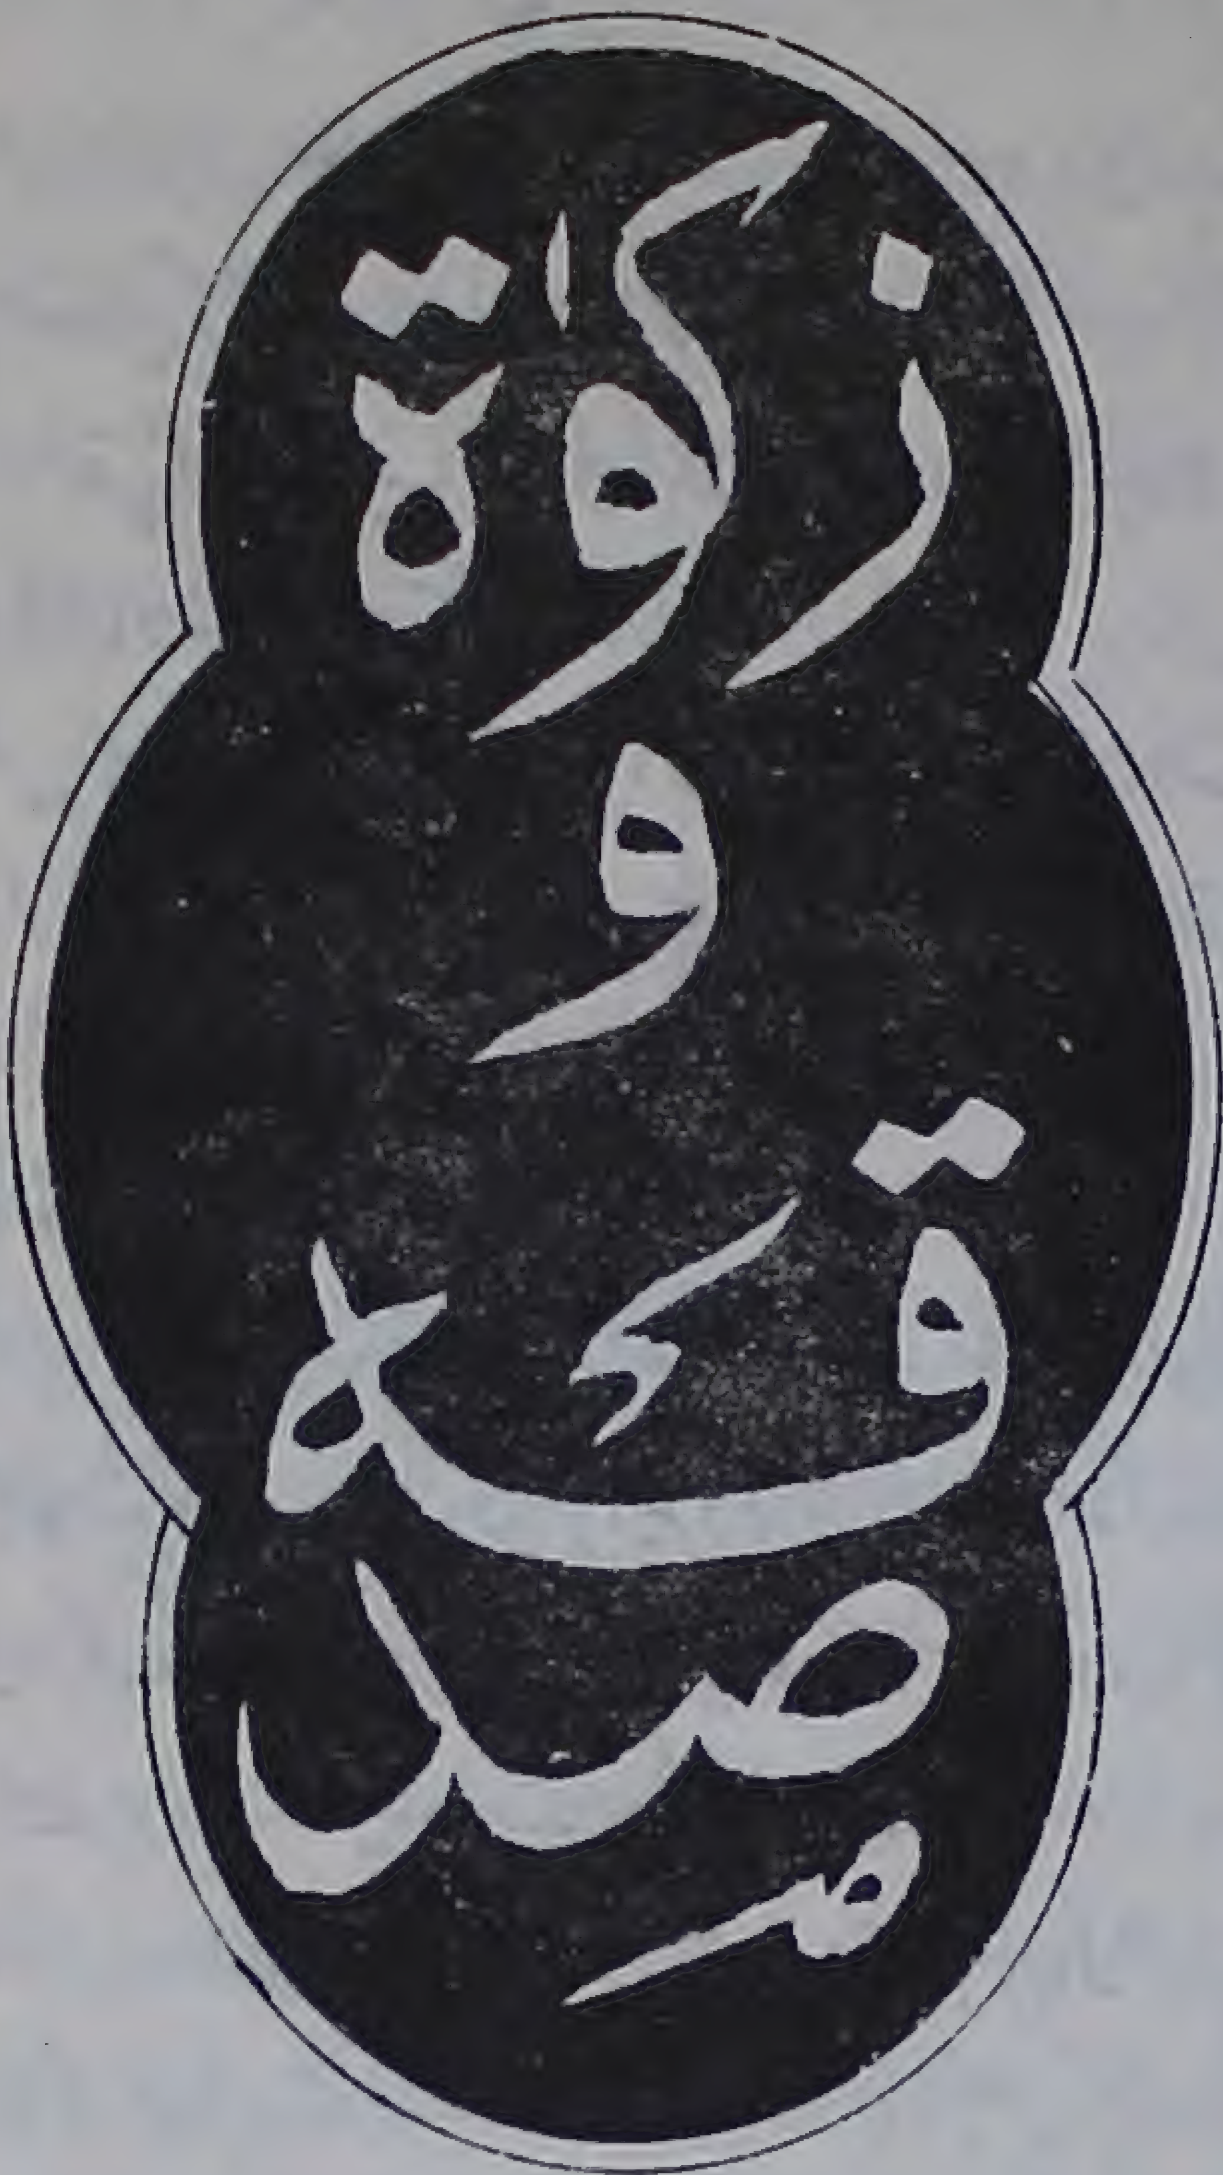 زکوٰة
و
صدقہ